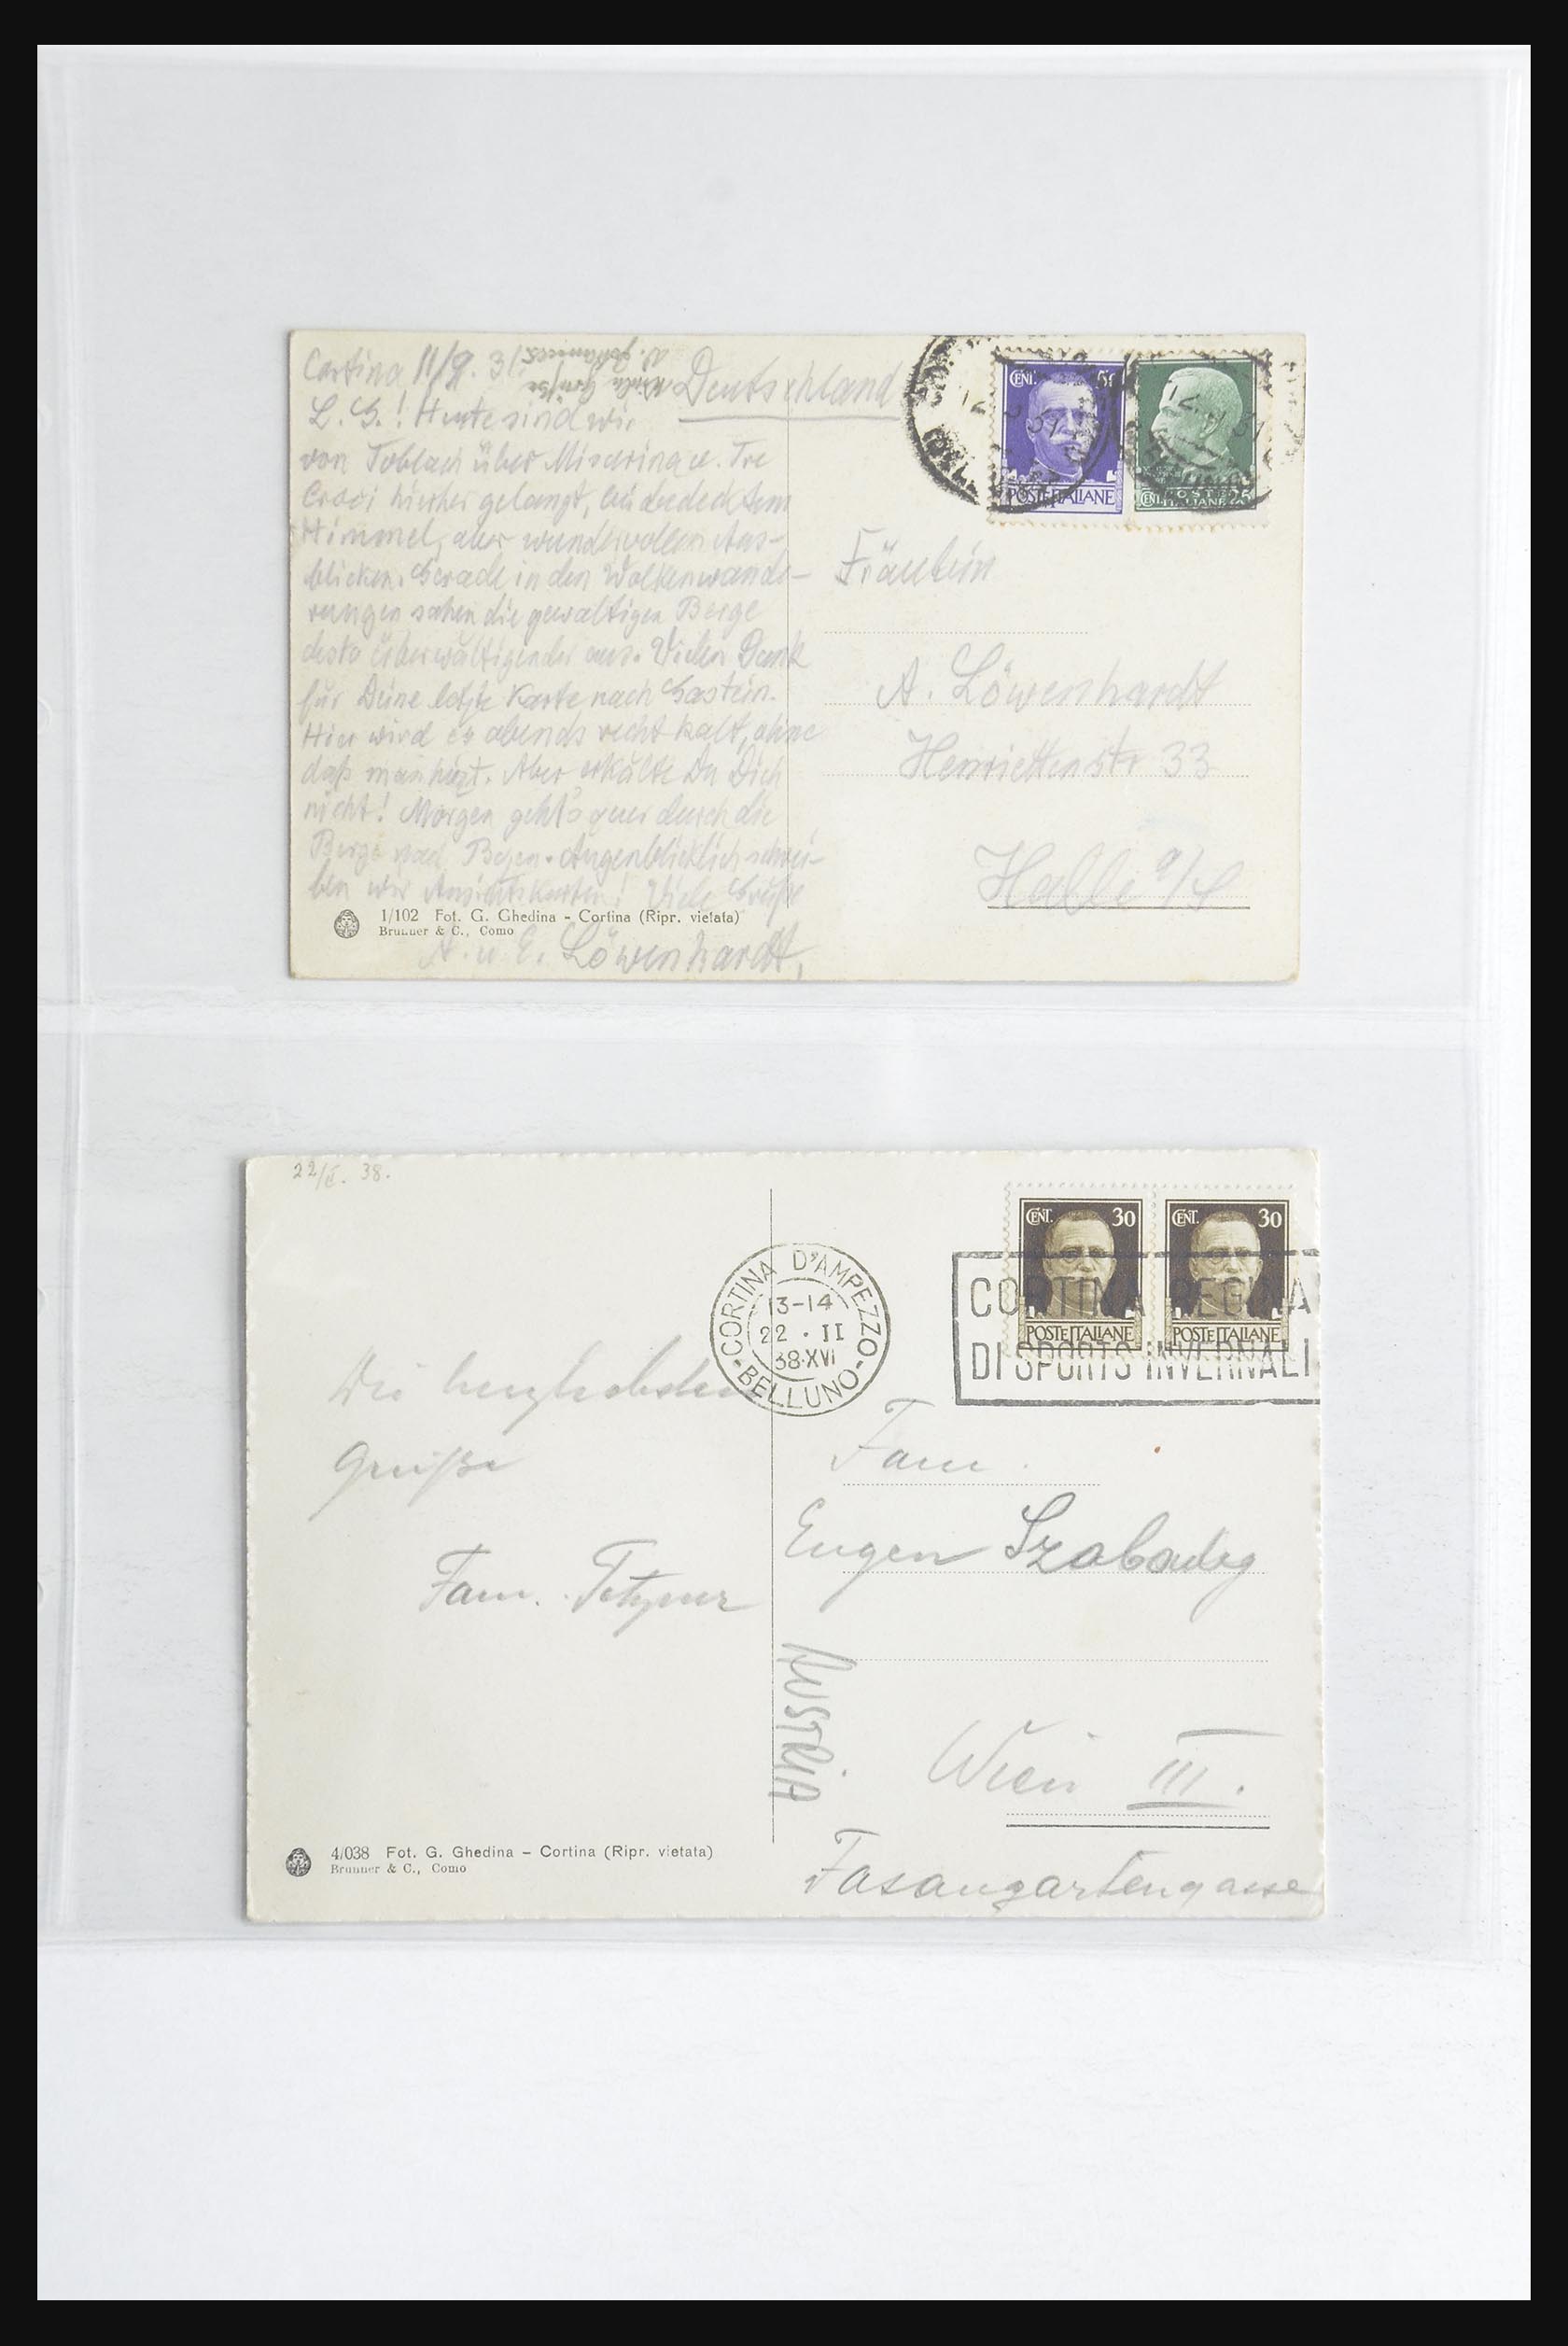 Cartina 11/9. 31
Viele Grüße
V. Johannes
Deutschland
L. G.! Heute sind wir
von Toblach über Misurina u. Tre
Croci hierher gelangt, bei bedecktem
Himmel, aber wundervollen Aus-
blicken. Gerade in den Wolkenwande-
rungen sahen die gewaltigen Berge
desto überwältigender aus. Vielen Dank
für Deine letzte Karte nach Gastein.
Hier wird es abends recht kalt, ohne
daß man heizt. Aber erkälte Du Dich
nicht! Morgen geht's quer durch die
Berge nach Bozen. Augenblicklich schrei-
ben wir Ansichtskarten! Viele Grüße
A. u. E. Löwenhardt,
1/102 Fot. G. Ghedina – Cortina (Ripr. vietata)
Brunner & C., Como
CENT. 50
POSTE ITALIANE
12 31
POSTE
CENT. ITALIANE 25
Fräulein
A. Löwenhardt
Henriettenstr 33
Halle a/S
22/II. 38.
CORTINA D'AMPEZZO
13-14
22 · II
38·XVI
-BELLUNO-
CENT. 30
POSTE ITALIANE
CENT. 30
POSTE ITALIANE
CORTINA REGINA
DI SPORTS INVERNALI
Die herzlichsten
Grüße
Fam.
Fam.
Eugen
AUSTRIA
Wien III.
Fasangartengasse
4/038 Fot. G. Ghedina – Cortina (Ripr. vietata)
Brunner & C., Como